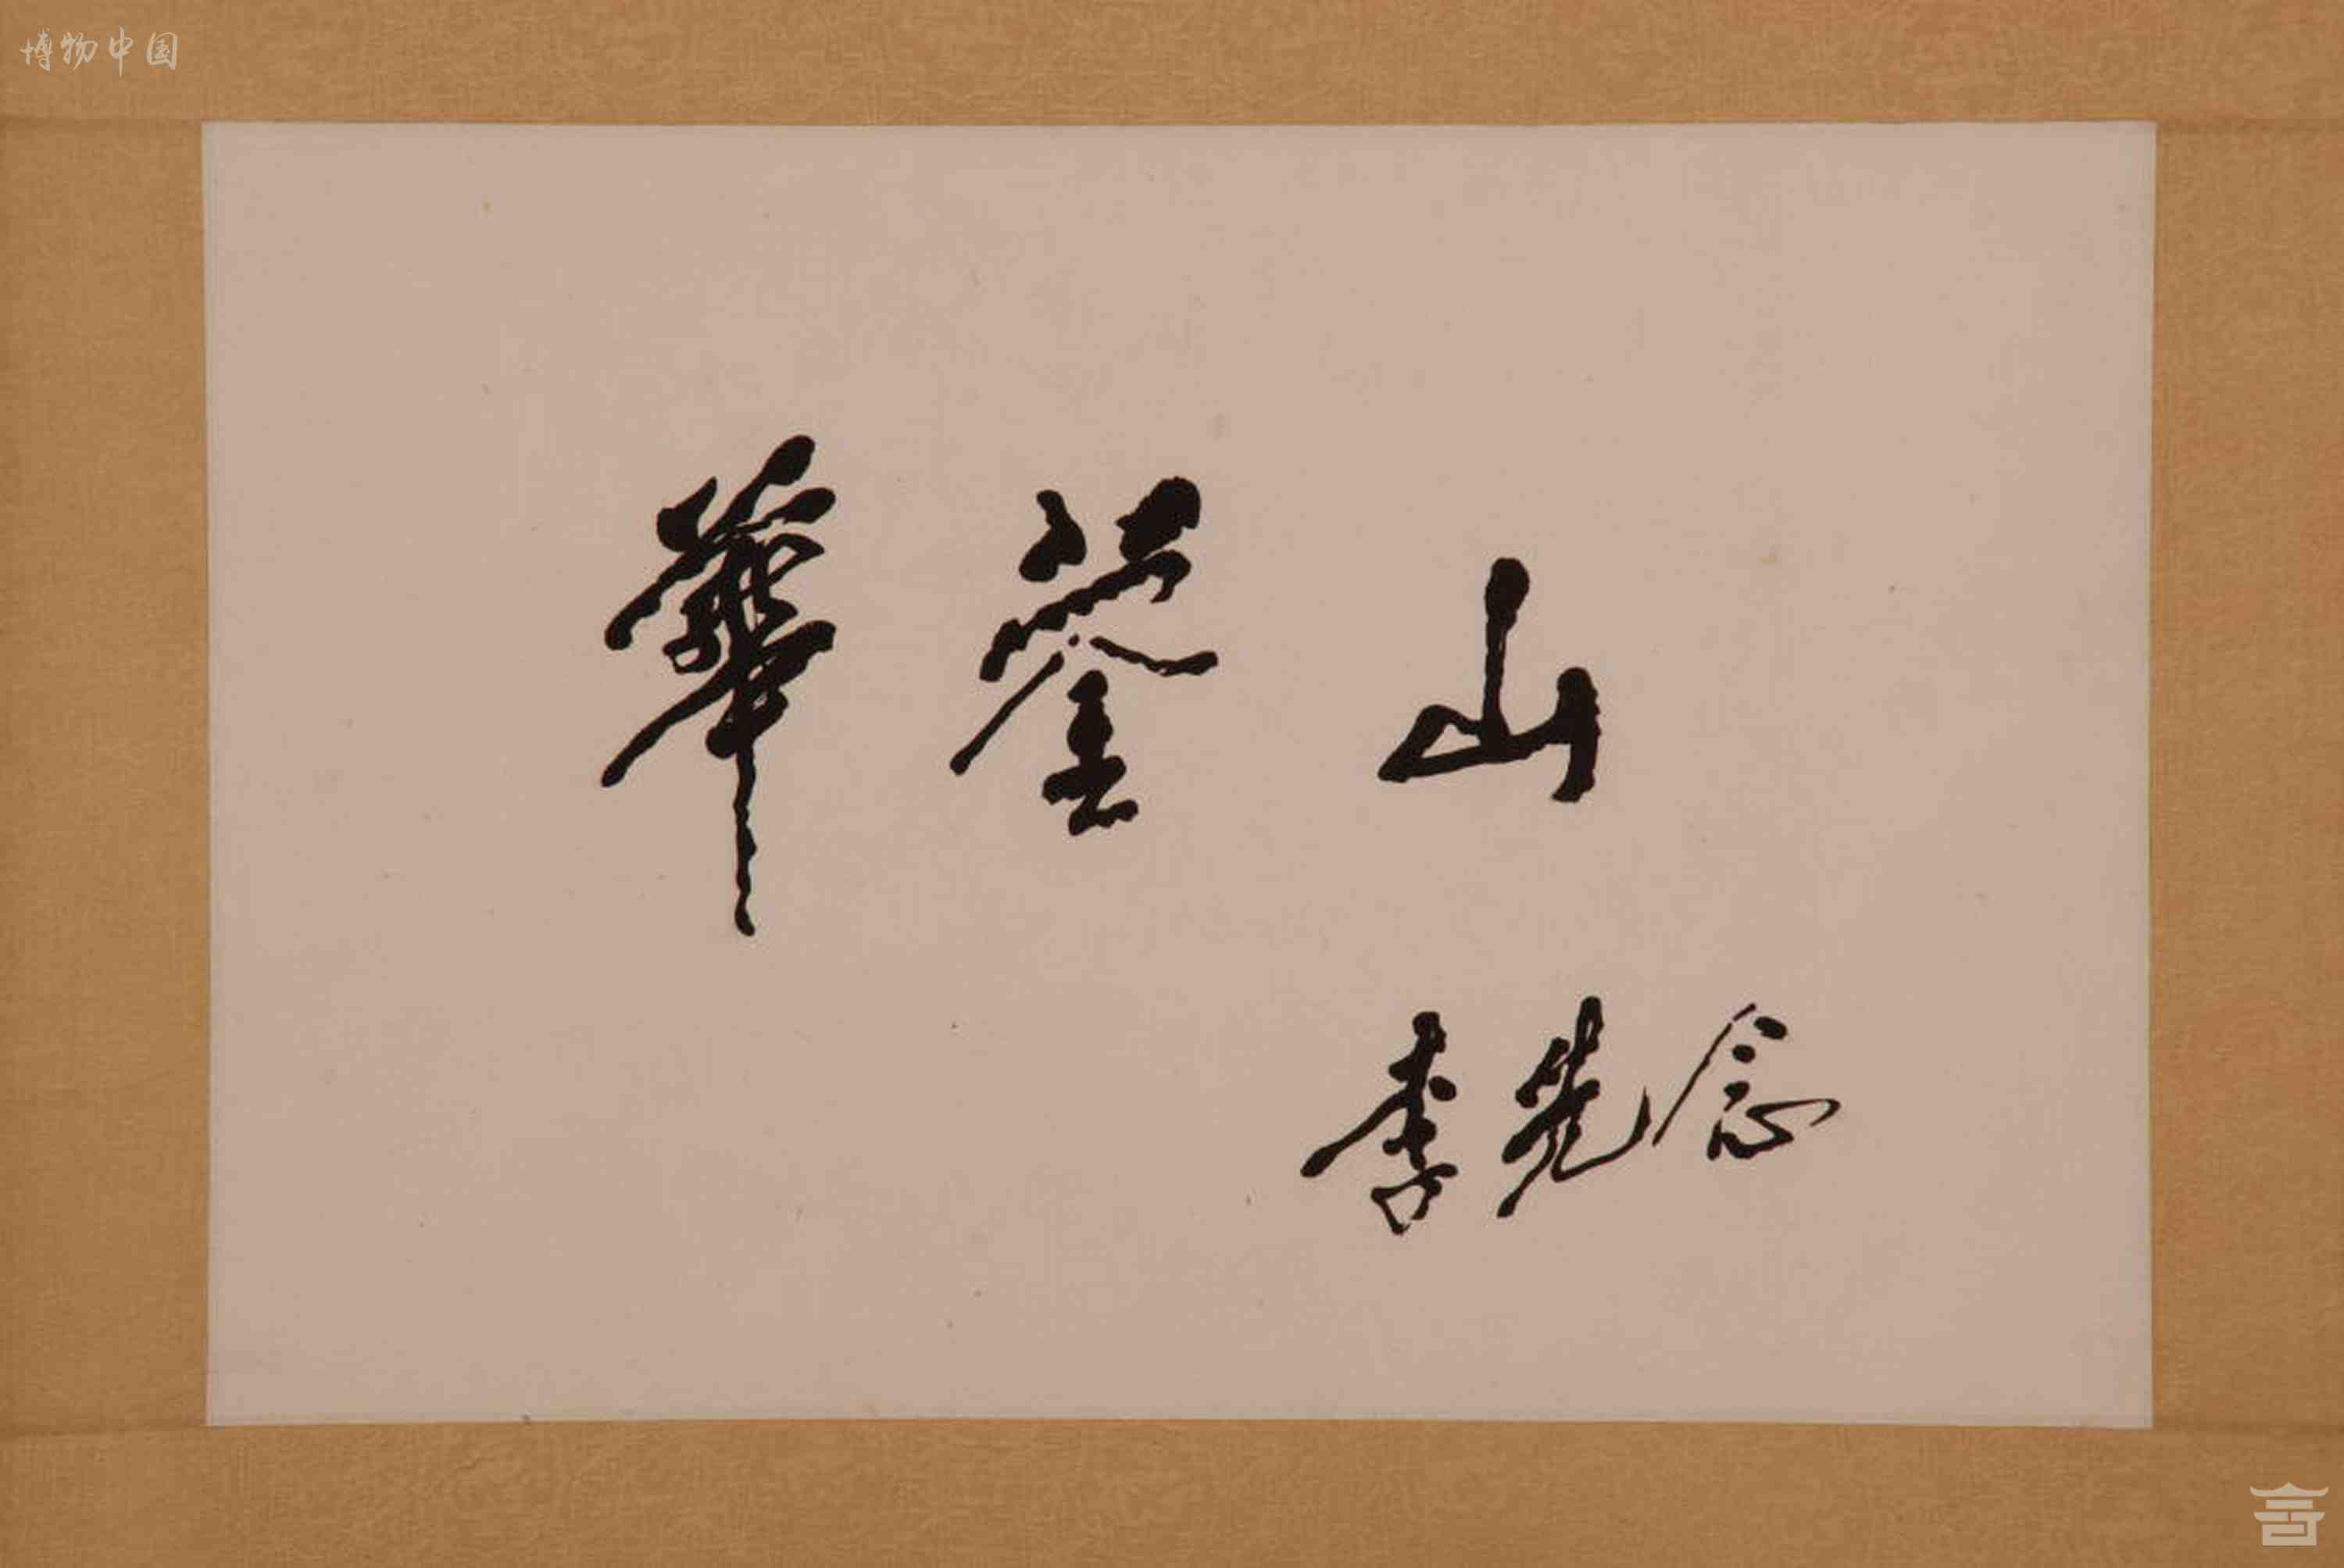 博物中国
華蓥山
李先念